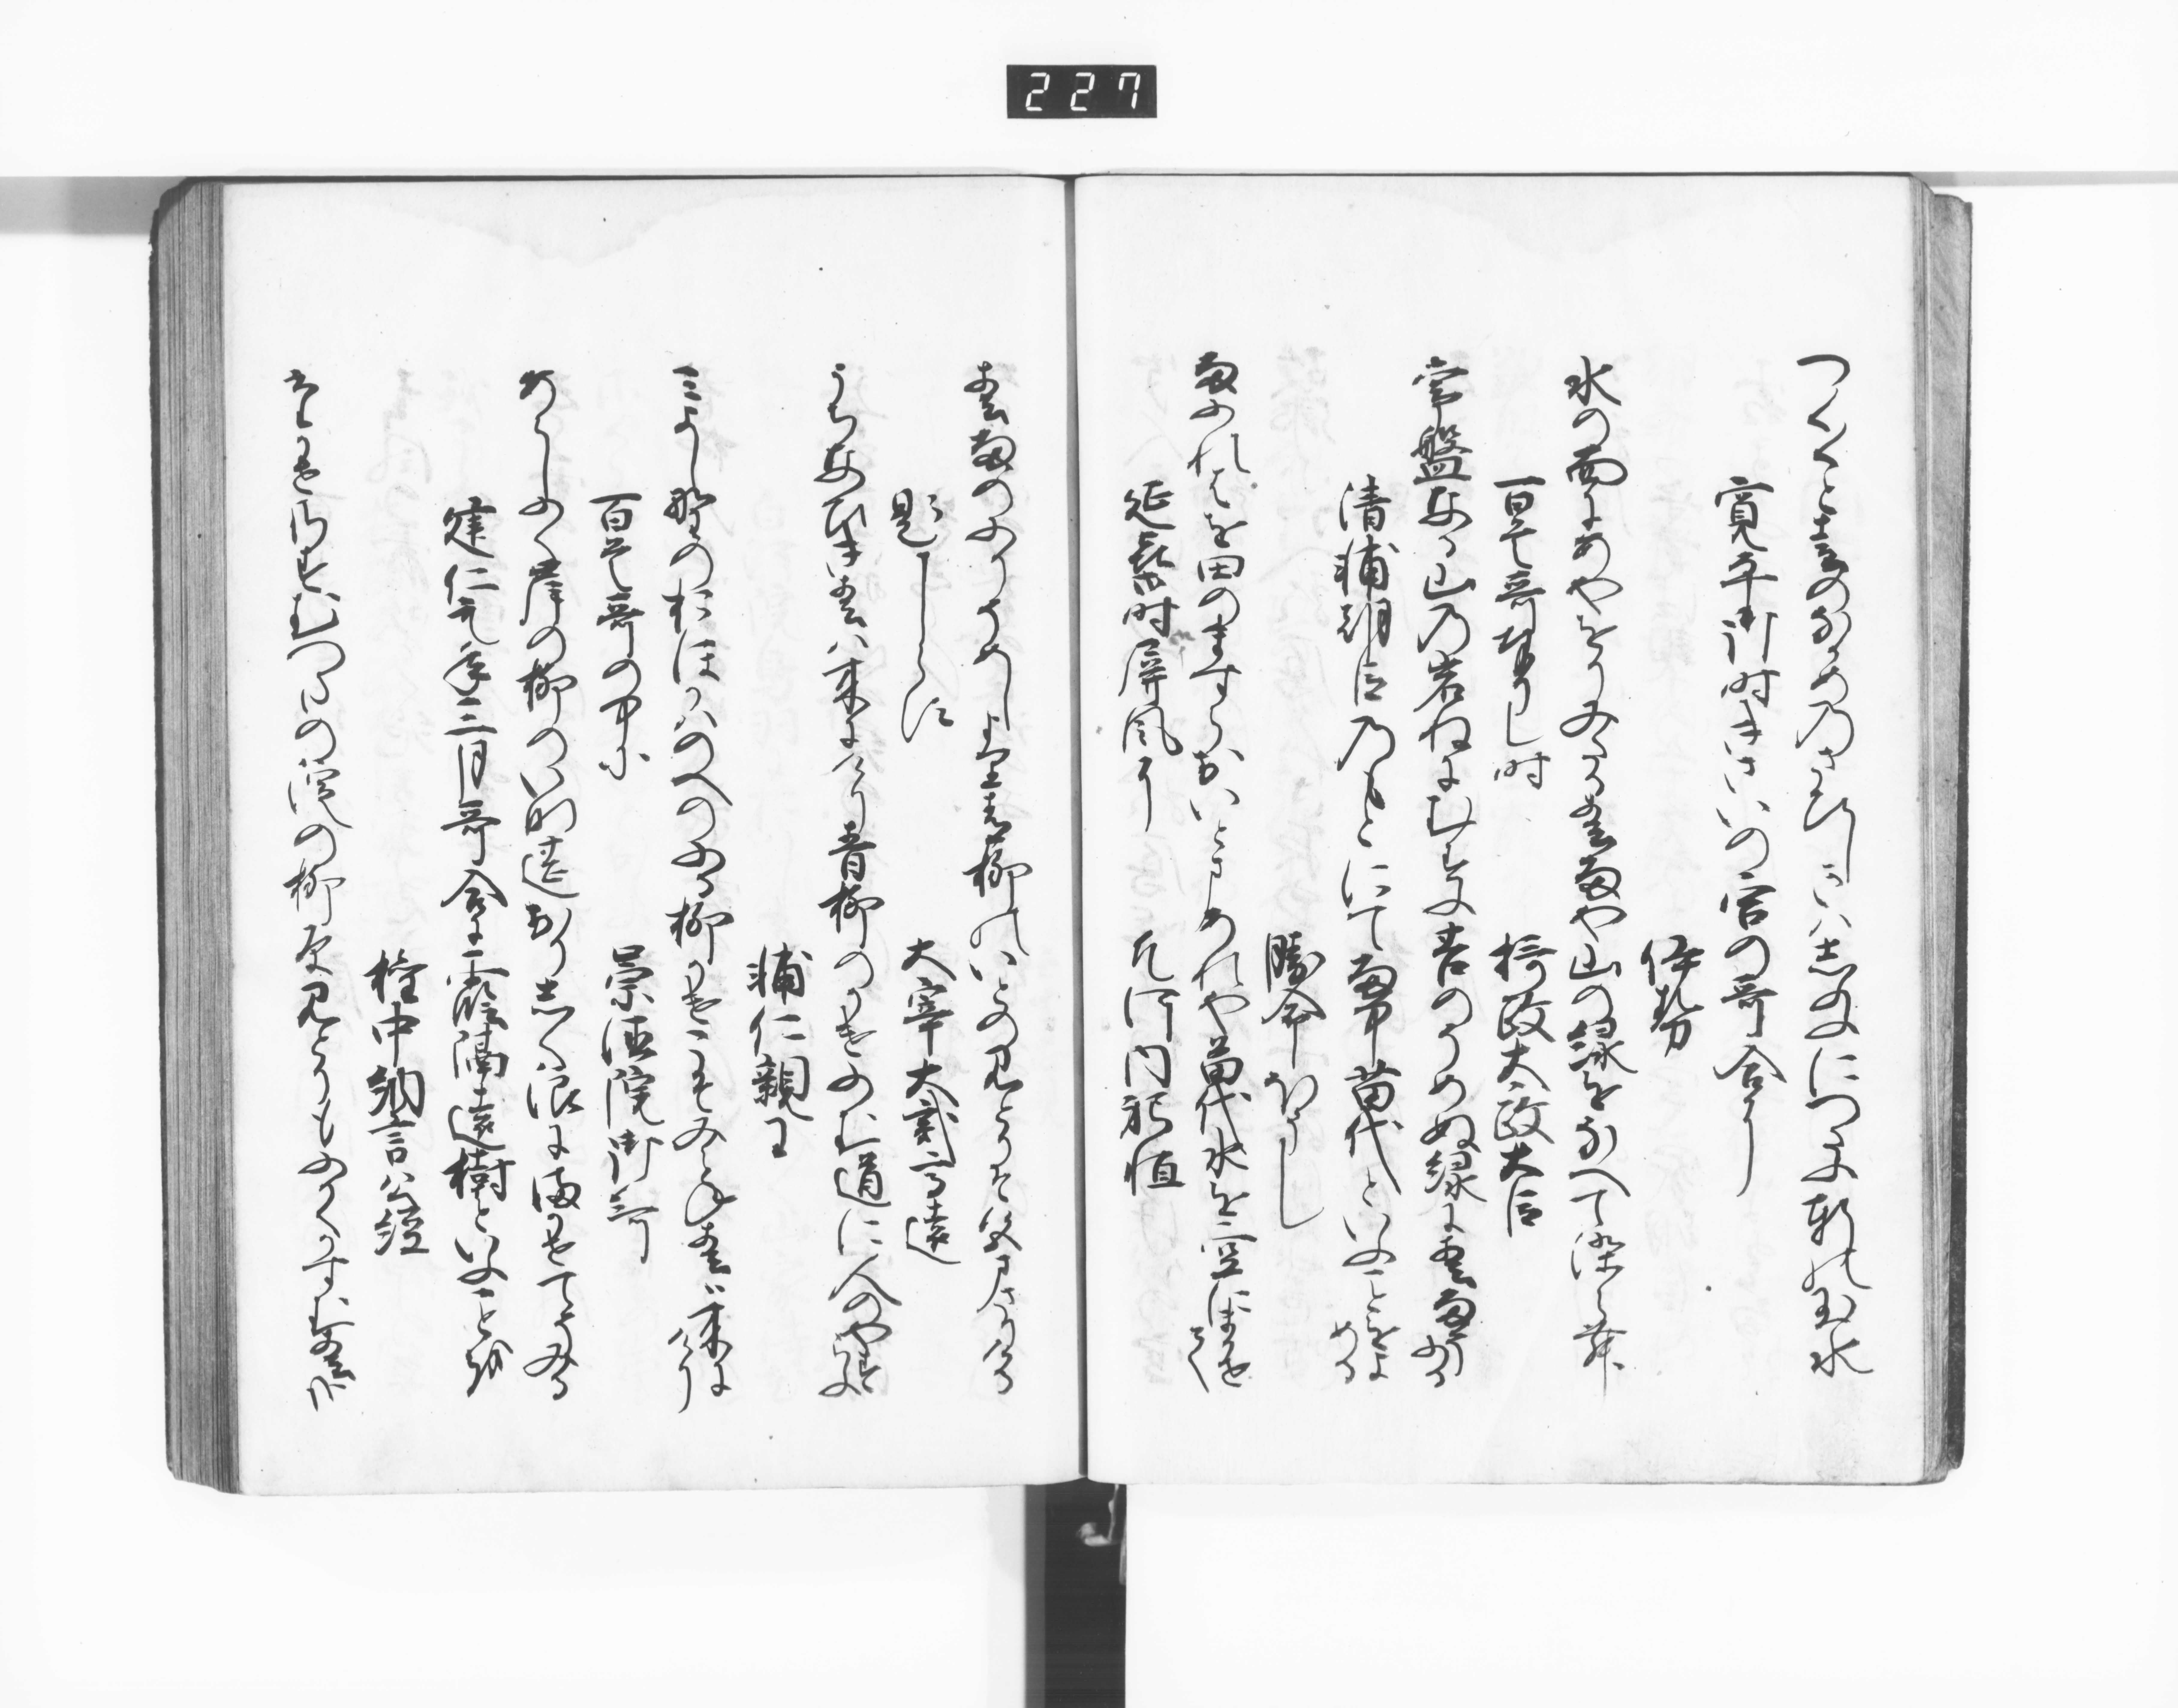 227
つく〳〵と春のなかめのさひしきは志のふにつたふ軒の玉水
寛平御時きさいの宮の哥合に
伊勢
水の面にあやをりみたる春雨や山の緑をなへて染らん
百首哥奉りし時
摂政太政大臣
常盤なる山乃岩ねにむす苔のそめぬ緑に春雨そふる
清輔朝臣乃もとにて雨中苗代といふことをよめる
勝命法し
雨ふれは小田のますらおいとまあれや苗代水を空にまかせて
延喜御時屏風に
凡河内躬恒
春雨のふりそめしより青柳のいとの見とりそ色まさりける
題しらす
大宰大貳高遠
うちなひき春は来にけり青柳のかけふむ道に人のやすらふ
輔仁親王
みよし野の大川のへのふる柳かけこそみえね春は来にけり
百首哥の中に
崇徳院御哥
あらしふく岸の柳のいなむしろおりしく浪にまかせてそみる
建仁元年三月哥合に霞隔遠樹といふことを
権中納言公経
たかせさすむつたの淀の柳原見とりもふかくかすむ春哉